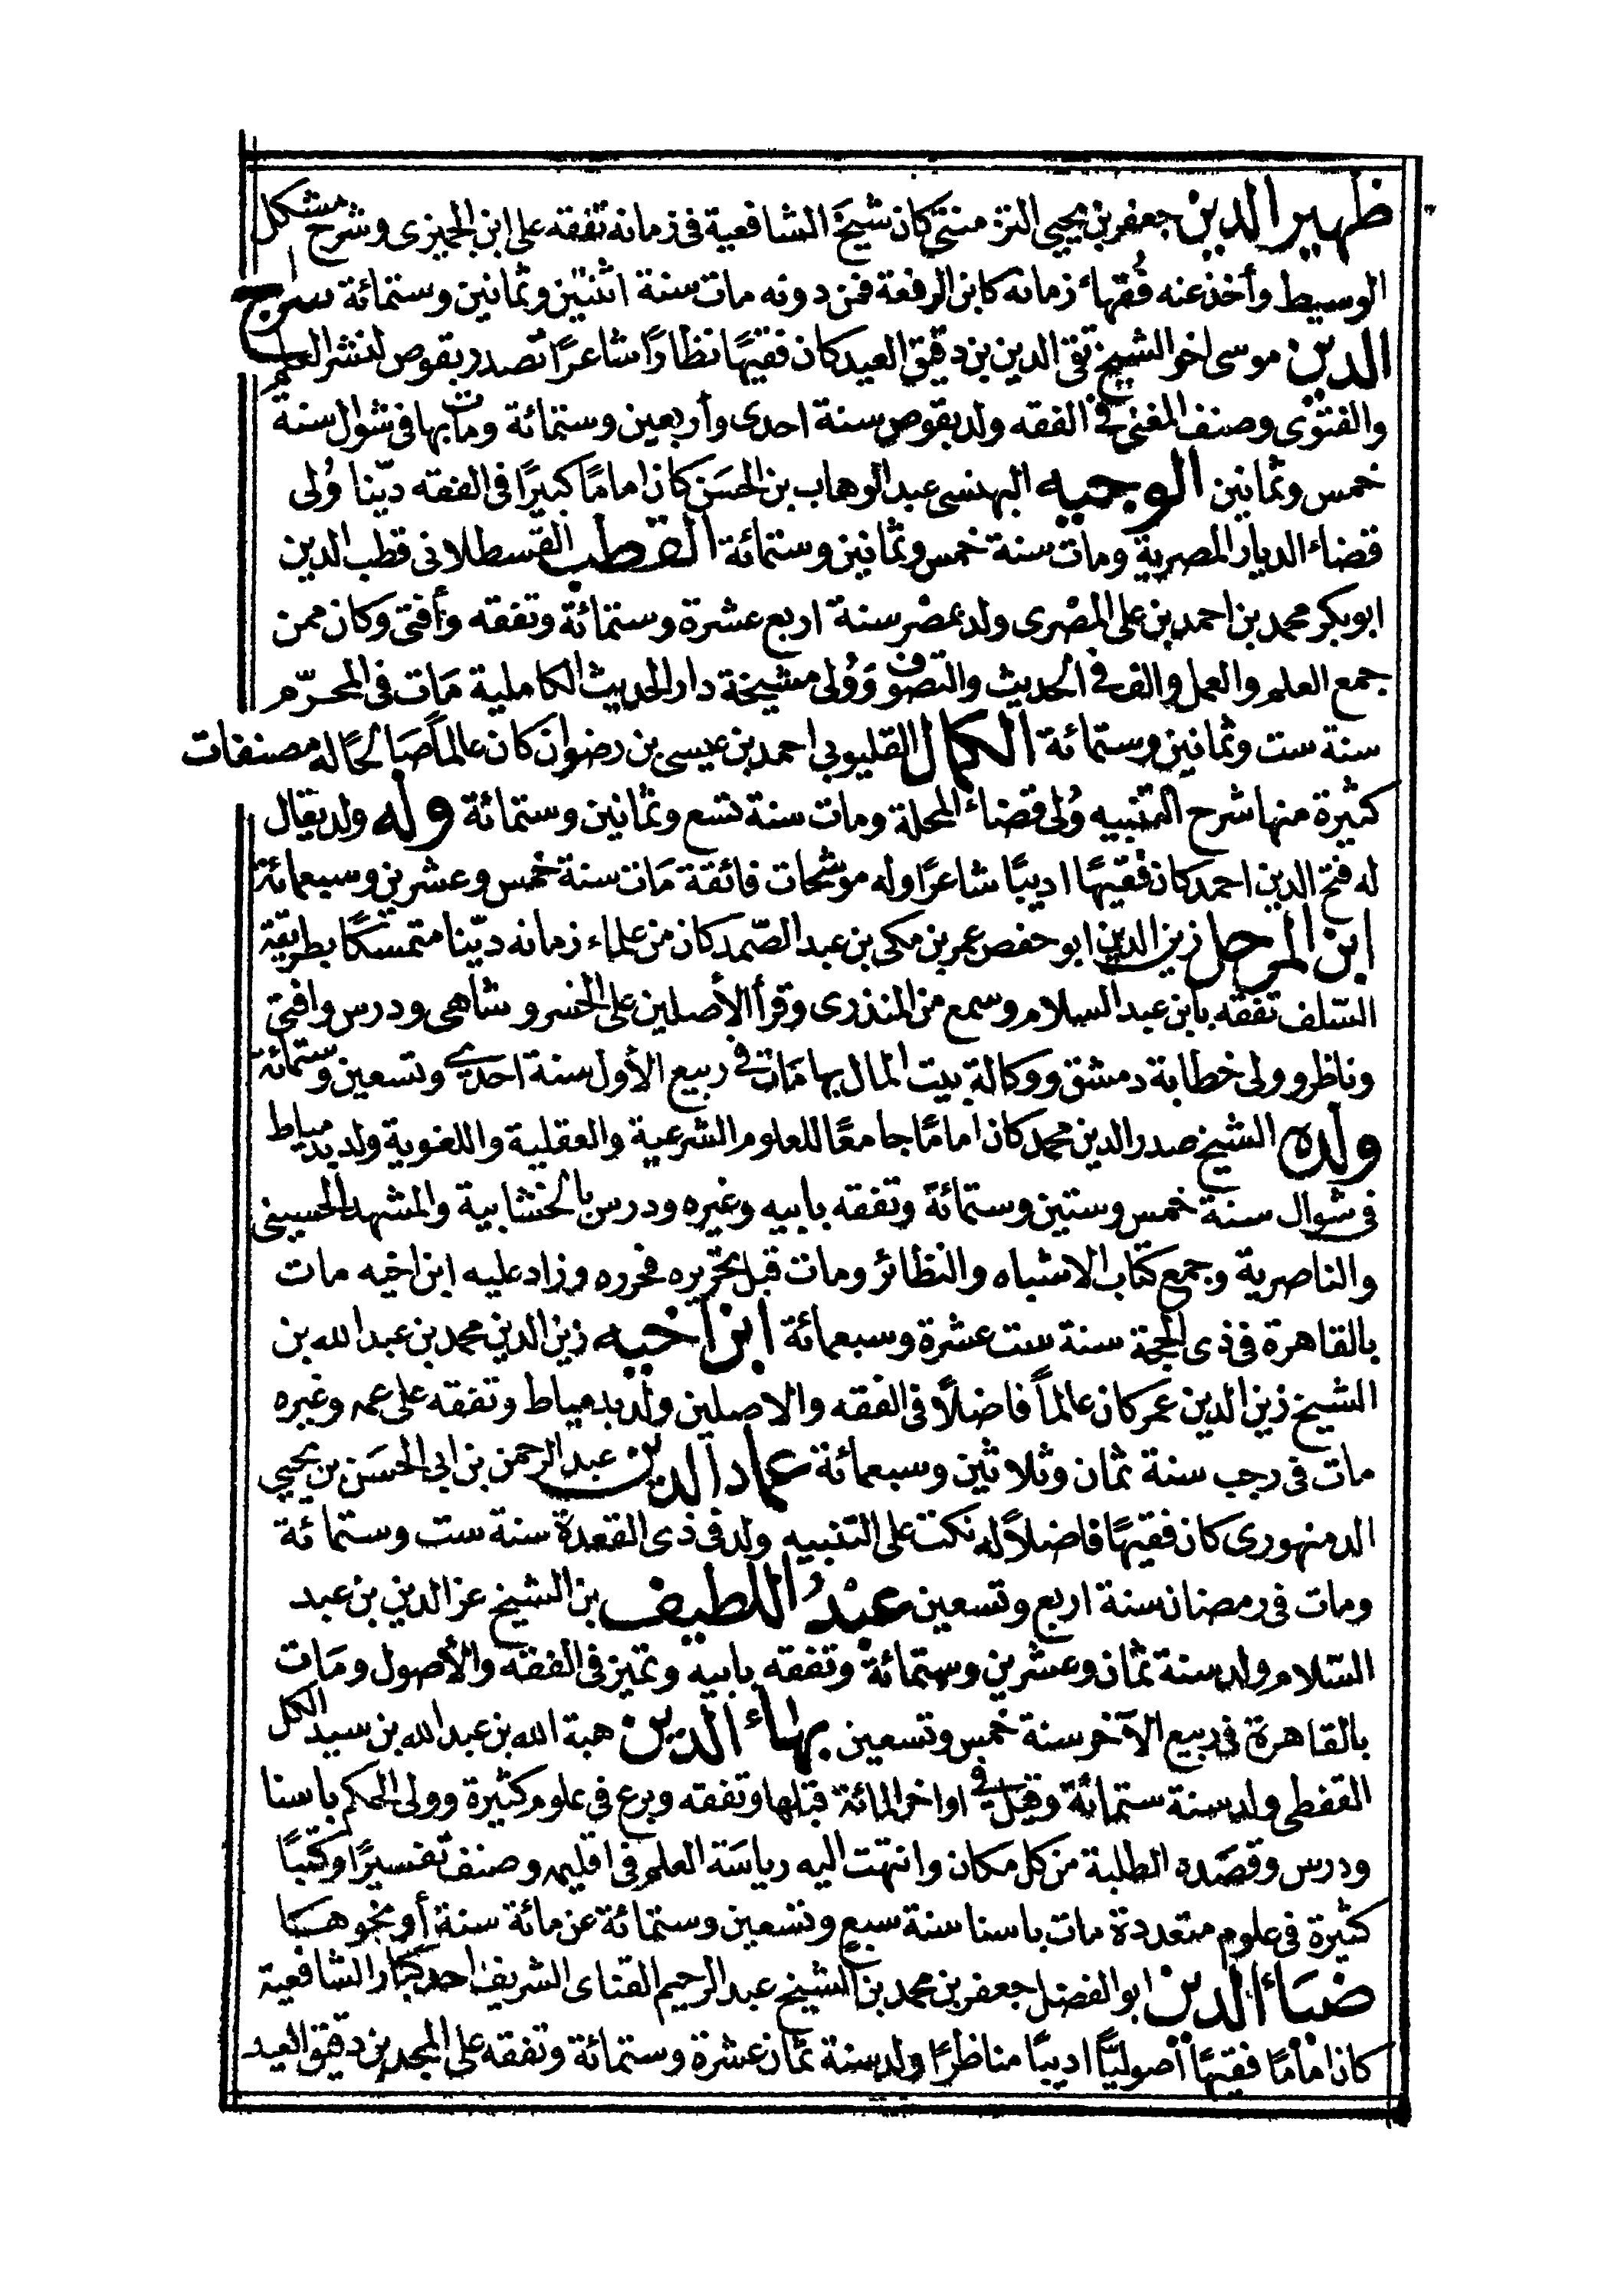 ظهير الدين جعفر بن يحيى التزمنتى كان شيخ الشافعية فى زمانه تفقه على ابن الجميزى وشرح مشكل
الوسيط وأخذ عنه فُقهاء زمانه كابن الرفعة فمن دونه مات سنة اثنتين وثمانين وستمائة سراج
الدين موسى اخو الشيخ تقى الدين بن دقيق العيد كان فقيهًا نظارًا شاعرًا تصدر بقوص لنشر العلم
والفتوى وصنف المغنى فى الفقه ولد بقوص سنة احدى وأربعين وستمائة ومات بها فى شوال سنة
خمس وثمانين الوجيه البهنسى عبد الوهاب بن الحسَن كان امامًا كبيرًا فى الفقه ديّنا وُلى
قضاء الديار المصرية ومات سنة خمس وثمانين وستمائة القطب القسطلانى قطب الدين
ابو بكر محمد بن احمد بن على المصْرى ولد بمصْر سنة اربع عشرة وستمائة وتفقه وأفتى وكان ممن
جمع العلم والعمل والف فى الحديث والتصوف وَوُلى مشيخة دار الحديث الكاملية مَات فى المحرّم
سنة ست وثمانين وستمائة الكمال القليوبى احمد بن عيسى بن رضوان كان عالمًا صَالحًا له مصنفات
كثيرة منها شرح التنبيه وُلى قضاء المحلة ومات سنة تسع وثمانين وستمائة وله ولد يقال
له فتح الدين احمد كان فقيهًا اديبًا شاعرًا وله موشحات فائقة مَات سنة خمس وعشرين وسبعمائة
ابن المرحل زين الدين ابو حفص عمر بن مكى بن عبد الصّمد كان من علماء زمانه ديّنا متمسّكًا بطريقة
السّلف تفقه بابن عبد السلام وسمع من المنذرى وقرأ الأصلين على الخسروشاهى ودرس وافتى
وناظر وولى خطابة دمشق ووكالة بيت المال بها مَات فى ربيع الأول سنة احدى وتسعين وستمائة
ولده الشيخ صدر الدين محمد كان امامًا جامعًا للعلوم الشرعية والعقلية واللغوية ولد بدمياط
فى شوال سنة خمس وستين وستمائة وتفقه بابيه وغيره ودرس بالخشابية والمشهد الحسينى
والناصرية وجمع كتاب الاشباه والنظائر ومات قبل تحريره فحرره وزاد عليه ابن اخيه مات
بالقاهرة فى ذى الحجة سنة ست عشرة وسبعمائة ابن اخيه زين الدين محمد بن عبد الله بن
الشيخ زين الدين عمر كان عالمًا فاضلًا فى الفقه والاصلين ولد بدمياط وتفقه على عمه وغيره
مات فى رجب سنة ثمان وثلاثين وسبعمائة عماد الدين عبد الرحمن بن ابى الحسَن بن يحيى
الدمنهورى كان فقيهًا فاضلًا له نكت على التنبيه ولد فى ذى القعدة سنة ست وستمائة
ومات فى رمضان سنة اربع وتسعين عبْدُ اللطيف بن الشيخ عز الدين بن عبد
السّلام ولد سنة ثمان وعشرين وستمائة وتفقه بابيه وتميز فى الفقه والأصول ومَات
بالقاهرة فى ربيع الآخر سنة خمس وتسعين بهاء الدين هبة الله بن عبد الله بن سيد الكل
القفطى ولد سنة ستمائة وقيل فى اواخر المائة قبلها وتفقه وبرع فى علوم كثيرة وولى الحكم باسنا
ودرس وقصَده الطلبة من كل مكان وانتهت اليه رياسَة العلم فى اقليمه وصنف تفسيرًا وكتبًا
كثيرة فى علوم متعددة مات باسنا سنة سبع وتسعين وستمائة عن مائة سنة أو نحوهَا
ضيَاء الدين ابو الفضل جعفر بن محمد بن الشيخ عبد الرحيم القناى الشريف احد كبار الشافعية
كان امامًا فقيهًا أصوليًّا اديبًا مناظرًا ولد سنة ثمان عشرة وستمائة وتفقه على المجد بن دقيق العيد